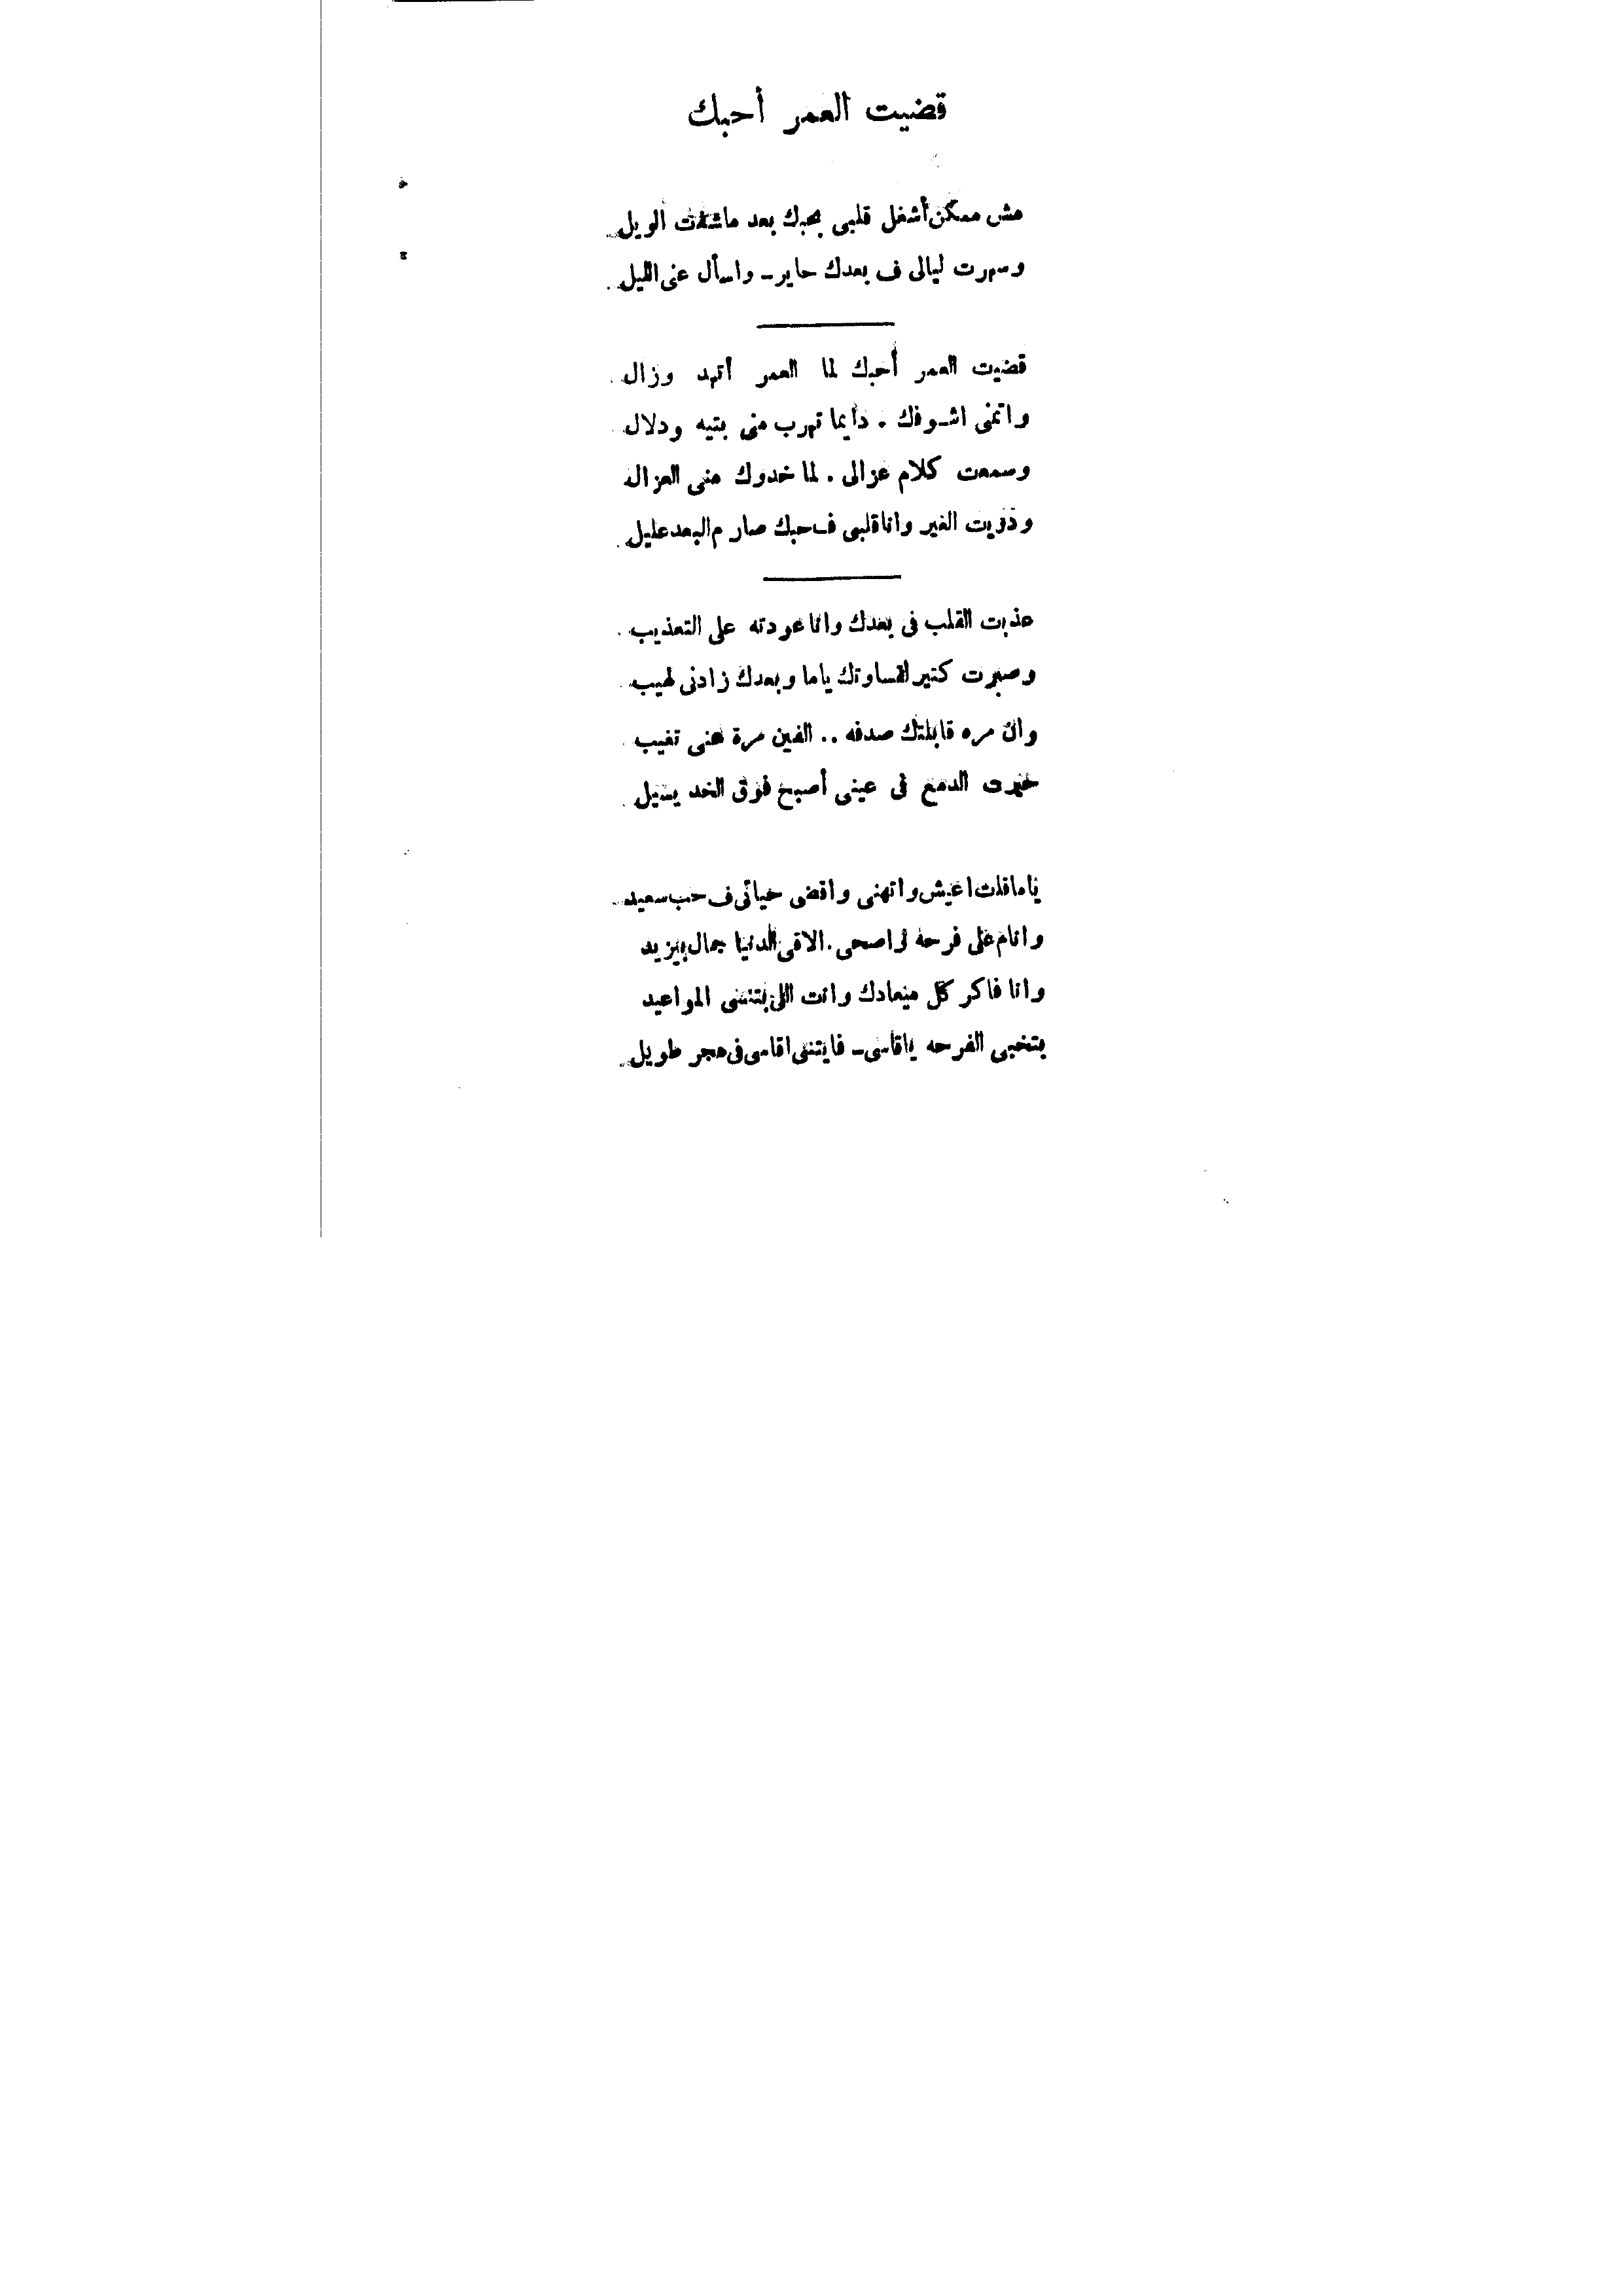 قضيت العمر أحبك
مش ممكن أشغل قلبى بحبك بعد ماشفت الويل
وسهرت ليالى ف بعدك حاير ــ واسأل عنى الليل
قضيت العمر أحبك لما العمر أتهد وزال
واتمنى اشوفك . دايما تهرب منى بتيه ودلال
وسمعت كلام عزالى . لما خدوك منى العزال
الغير وانا قلبى ف حبك صار م البعد عليل
عذبت القلب فى بعدك وانا عودته على التعذيب
وصبرت كتير لقساوتك ياما وبعدك زادنى لهيب
وان مره قابلتك صدفه .. الفين مرة عنى تغيب
حيرت الدمع فى عينى أصبح فوق الخد يسيل
ياما قلت اعيش واتهنى واقضى حياتى ف حب سعيد
وانام على فرحه اصحى . الاقى الدنيا جمال بيزيد
وانا فاكر كل ميعادك وانت اللى بتنسى المواعيد
بتخبى الفرحه ياقاسى ــ فايتنى اقاسى فى هجر طويل